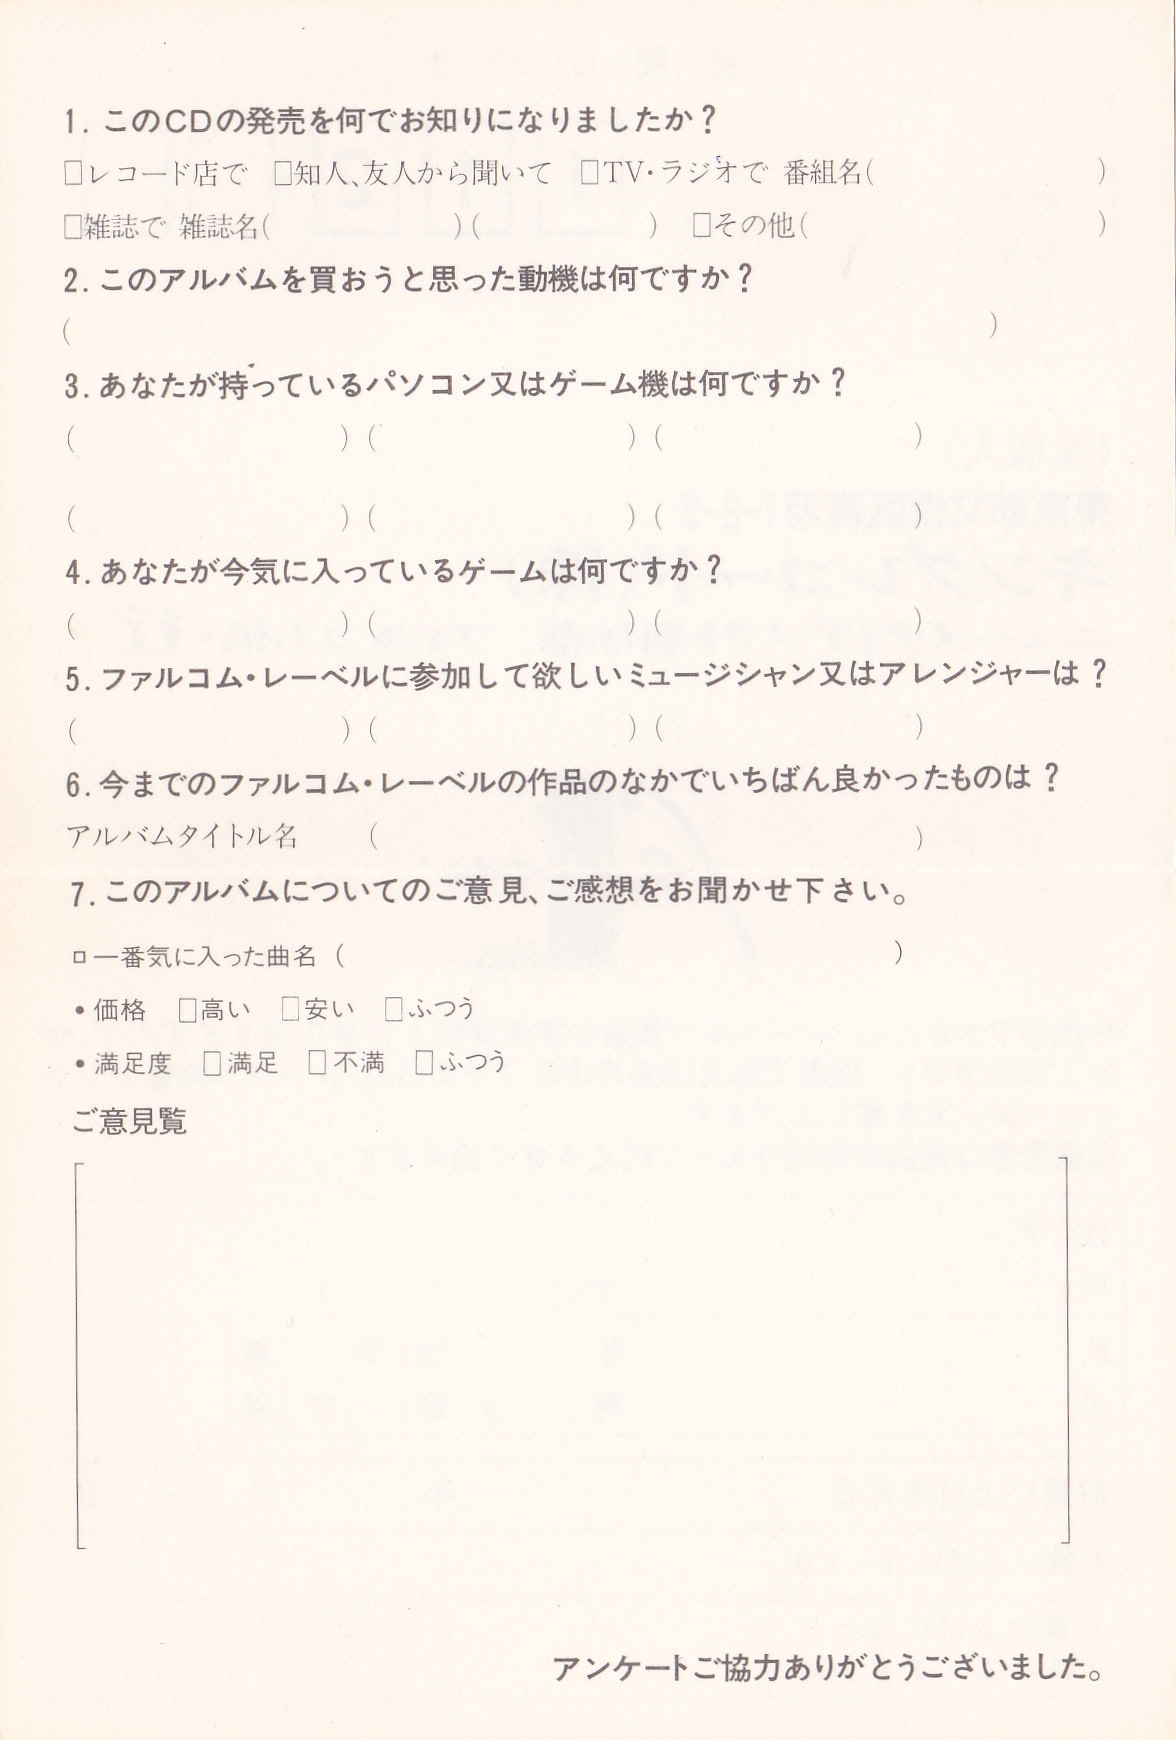 1. このCDの発売を何でお知りになりましたか？
□レコード店で □知人、友人から聞いて □TV・ラジオで 番組名( )
□雑誌で 雑誌名( )( ) □その他( )
2. このアルバムを買おうと思った動機は何ですか？
( )
3. あなたが持っているパソコン又はゲーム機は何ですか？
( ) ( ) ( )
( ) ( ) ( )
4. あなたが今気に入っているゲームは何ですか？
( ) ( ) ( )
5. ファルコム・レーベルに参加して欲しいミュージシャン又はアレンジャーは？
( ) ( ) ( )
6. 今までのファルコム・レーベルの作品のなかでいちばん良かったものは？
アルバムタイトル名 ( )
7. このアルバムについてのご意見、ご感想をお聞かせ下さい。
□一番気に入った曲名 ( )
•価格 □高い □安い □ふつう
•満足度 □満足 □不満 □ふつう
ご意見覧
アンケートご協力ありがとうございました。